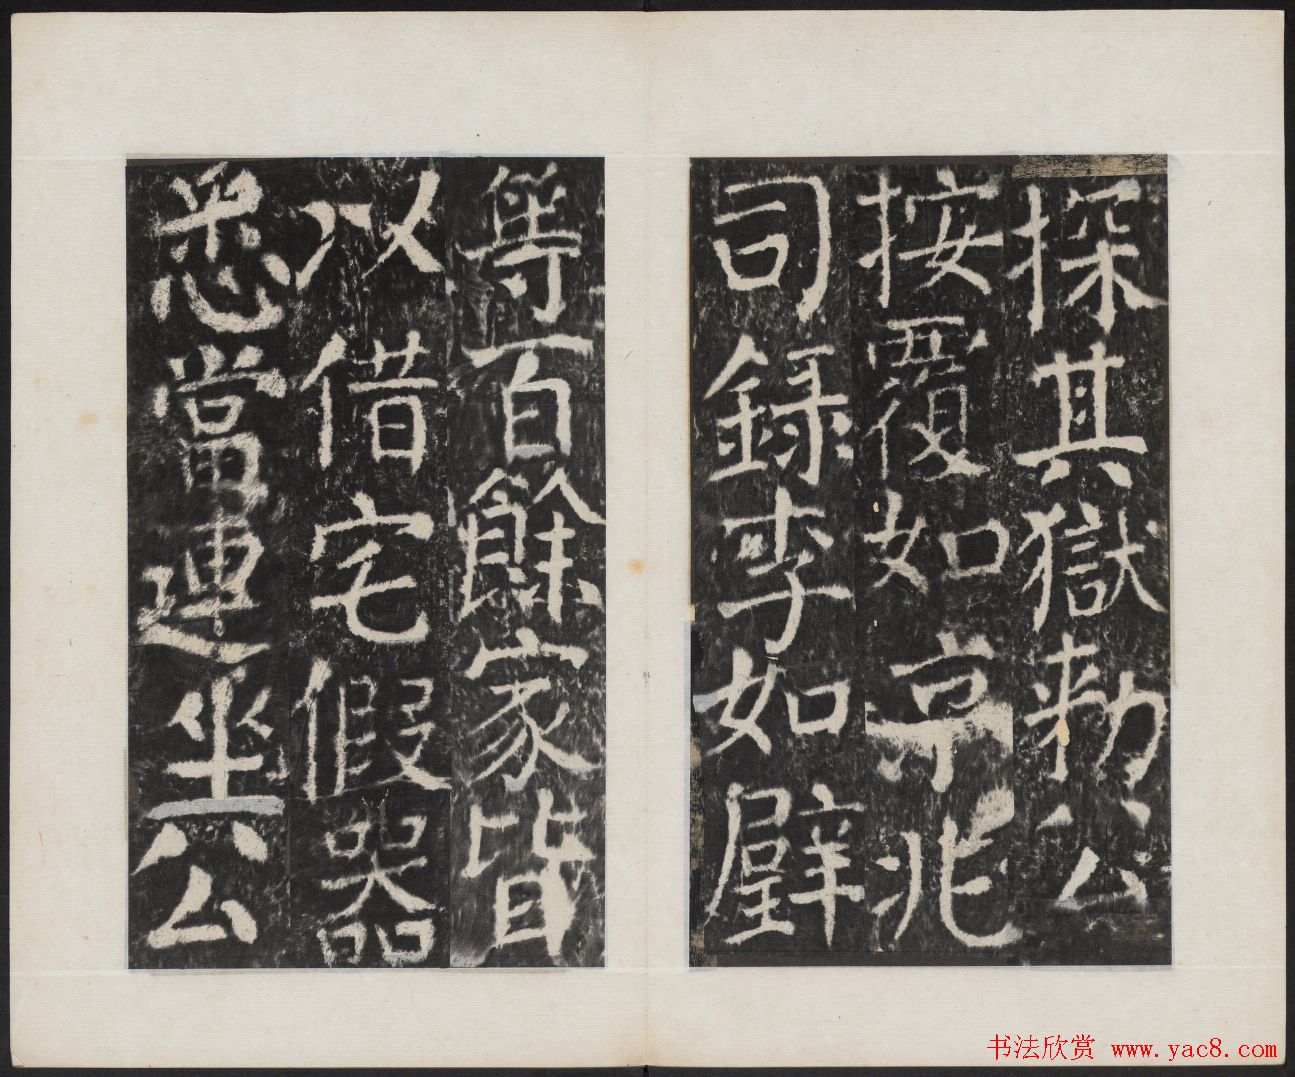 探其獄勑公
按覆如京兆
司錄李如璧
等百餘家皆
以借宅假器
悉當連坐公
书法欣赏 www.yac8.com